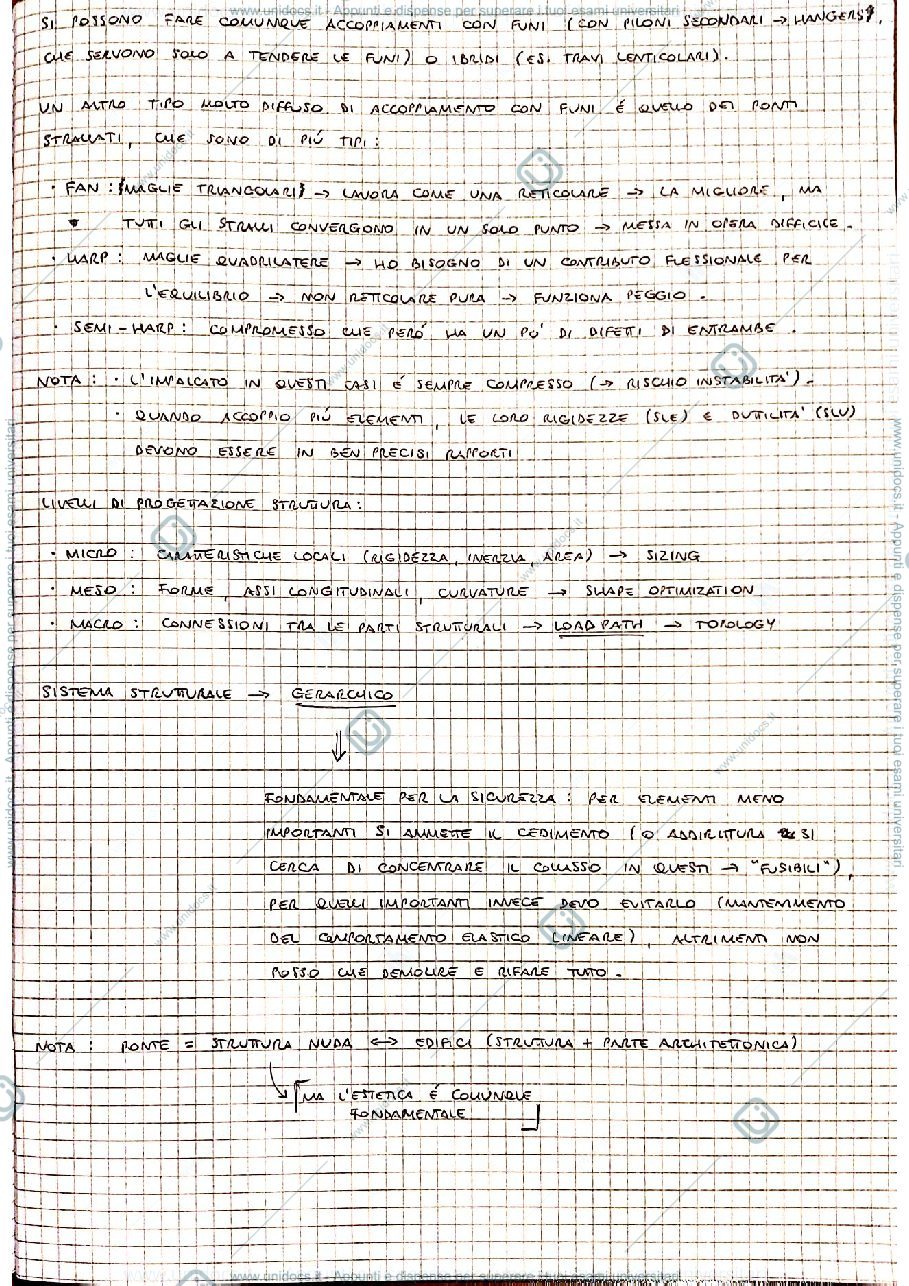 www.unidocs.it - Appunti e dispense per superare i tuoi esami universitari
SI POSSONO FARE COMUNQUE ACCOPPIAMENTI CON FUNI (CON PILONI SECONDARI → HANGERS,
CHE SERVONO SOLO A TENDERE LE FUNI) O IBRIDI (ES. TRAVI LENTICOLARI).
UN ALTRO TIPO MOLTO DIFFUSO DI ACCOPPIAMENTO CON FUNI É QUELLO DEI PONTI
STRALLATI, CHE SONO DI PIÚ TIPI:
· FAN: (MAGLIE TRIANGOLARI) → LAVORA COME UNA RETICOLARE → LA MIGLIORE, MA
TUTTI GLI STRALLI CONVERGONO IN UN SOLO PUNTO → MESSA IN OPERA DIFFICILE.
· HARP: MAGLIE QUADRILATERE → HO BISOGNO DI UN CONTRIBUTO FLESSIONALE PER
L'EQUILIBRIO → NON RETICOLARE PURA → FUNZIONA PEGGIO.
· SEMI-HARP: COMPROMESSO CHE PERÓ HA UN PO' DI DIFETTI DI ENTRAMBE.
NOTA: · L'IMPALCATO IN QUESTI CASI É SEMPRE COMPRESSO (→ RISCHIO INSTABILITA').
· QUANDO ACCOPPIO PIÚ ELEMENTI, LE LORO RIGIDEZZE (SLE) E DUTTILITA' (SLU)
DEVONO ESSERE IN BEN PRECISI RAPPORTI
LIVELLI DI PROGETTAZIONE STRUTTURA:
· MICRO: CARATTERISTICHE LOCALI (RIGIDEZZA, INERZIA, AREA) → SIZING
· MESO: FORME, ASSI LONGITUDINALI, CURVATURE → SHAPE OPTIMIZATION
· MACRO: CONNESSIONI TRA LE PARTI STRUTTURALI → LOAD PATH → TOPOLOGY
SISTEMA STRUTTURALE → GERARCHICO
⇓
FONDAMENTALE PER LA SICUREZZA: PER ELEMENTI MENO
IMPORTANTI SI AMMETTE IL CEDIMENTO (O ADDIRITTURA SI
CERCA DI CONCENTRARE IL COLLASSO IN QUESTI → "FUSIBILI"),
PER QUELLI IMPORTANTI INVECE DEVO EVITARLO (MANTENIMENTO
DEL COMPORTAMENTO ELASTICO LINEARE), ALTRIMENTI NON
POSSO CHE DEMOLIRE E RIFARE TUTTO.
NOTA: PONTE = STRUTTURA NUDA ↔ EDIFICI (STRUTTURA + PARTE ARCHITETTONICA)
↘ [MA L'ESTETICA É COMUNQUE
FONDAMENTALE]
www.unidocs.it - Appunti e dispense per superare i tuoi esami universitari